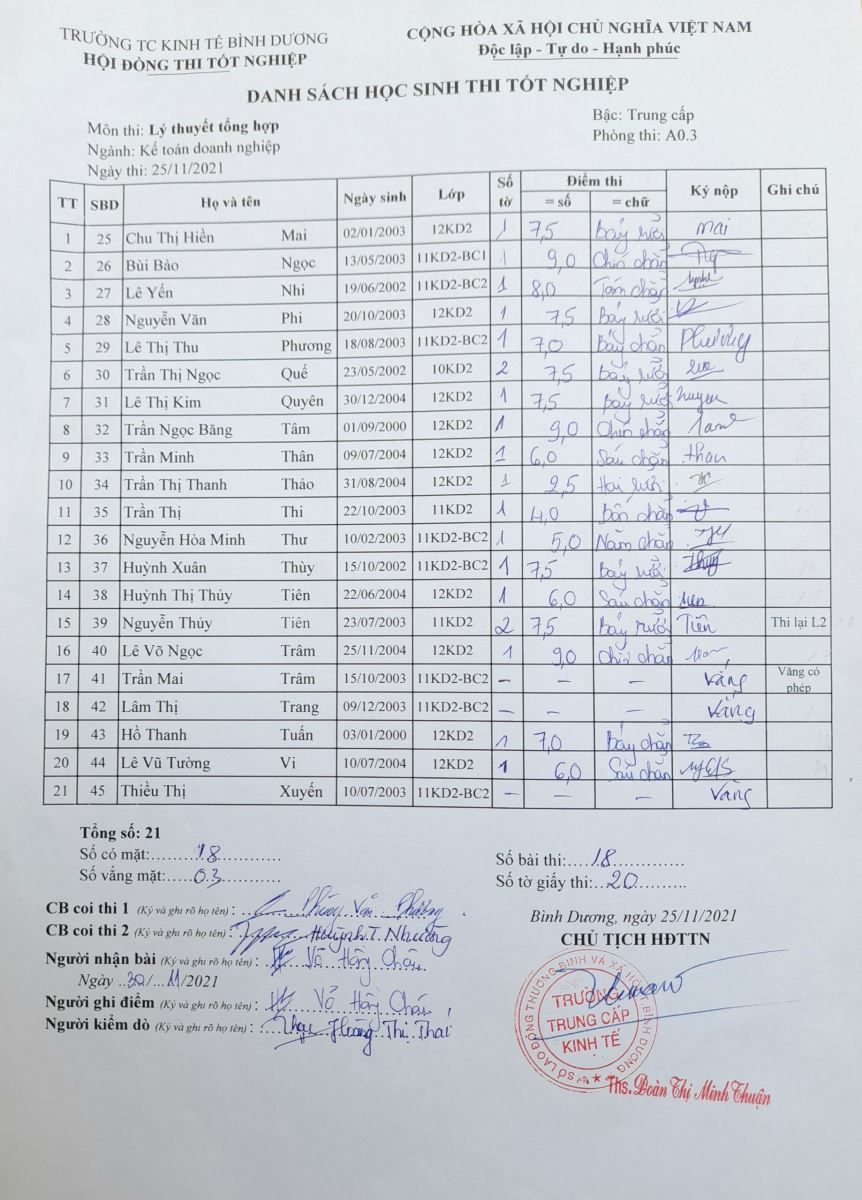 TRƯỜNG TC KINH TẾ BÌNH DƯƠNG
HỘI ĐỒNG THI TỐT NGHIỆP
CỘNG HÒA XÃ HỘI CHỦ NGHĨA VIỆT NAM
Độc lập - Tự do - Hạnh phúc
DANH SÁCH HỌC SINH THI TỐT NGHIỆP
Môn thi: Lý thuyết tổng hợp
Ngành: Kế toán doanh nghiệp
Ngày thi: 25/11/2021
Bậc: Trung cấp
Phòng thi: A0.3
TT SBD Họ và tên Ngày sinh Lớp Số tờ Điểm thi Ký nộp Ghi chú
= số = chữ
1 25 Chu Thị Hiền Mai 02/01/2003 12KD2 1 7,5 Bảy rưỡi Mai
2 26 Bùi Bảo Ngọc 13/05/2003 11KD2-BC1 1 9,0 Chín chẵn
3 27 Lê Yến Nhi 19/06/2002 11KD2-BC2 1 8,0 Tám chẵn
4 28 Nguyễn Văn Phi 20/10/2003 12KD2 1 7,5 Bảy rưỡi
5 29 Lê Thị Thu Phương 18/08/2003 11KD2-BC2 1 7,0 Bảy chẵn Phương
6 30 Trần Thị Ngọc Quế 23/05/2002 10KD2 2 7,5 Bảy rưỡi
7 31 Lê Thị Kim Quyên 30/12/2004 12KD2 1 7,5 Bảy rưỡi
8 32 Trần Ngọc Băng Tâm 01/09/2000 12KD2 1 9,0 Chín chẵn
9 33 Trần Minh Thân 09/07/2004 12KD2 1 6,0 Sáu chẵn than
10 34 Trần Thị Thanh Thảo 31/08/2004 12KD2 1 2,5 Hai rưỡi
11 35 Trần Thị Thi 22/10/2003 11KD2 1 4,0 Bốn chẵn
12 36 Nguyễn Hòa Minh Thư 10/02/2003 11KD2-BC2 1 5,0 Năm chẵn
13 37 Huỳnh Xuân Thùy 15/10/2002 11KD2-BC2 1 7,5 Bảy rưỡi Thuy
14 38 Huỳnh Thị Thủy Tiên 22/06/2004 12KD2 1 6,0 Sáu chẵn
15 39 Nguyễn Thủy Tiên 23/07/2003 11KD2 2 7,5 Bảy rưỡi Tiên Thi lại L2
16 40 Lê Võ Ngọc Trâm 25/11/2004 12KD2 1 9,0 Chín chẵn
17 41 Trần Mai Trâm 15/10/2003 11KD2-BC2 – – – Vắng Văng có phép
18 42 Lâm Thị Trang 09/12/2003 11KD2-BC2 – – – Vắng
19 43 Hồ Thanh Tuấn 03/01/2000 12KD2 1 7,0 Bảy chẵn
20 44 Lê Vũ Tường Vi 10/07/2004 12KD2 1 6,0 Sáu chẵn
21 45 Thiều Thị Xuyến 10/07/2003 11KD2-BC2 – – – Vắng
Tổng số: 21
Số có mặt:......18.............
Số vắng mặt:.....03..........
Số bài thi:.....18.............
Số tờ giấy thi:...20.........
CB coi thi 1 (Ký và ghi rõ họ tên): Phùng Văn Phường
CB coi thi 2 (Ký và ghi rõ họ tên): Huỳnh.T. Nhường
Người nhận bài (Ký và ghi rõ họ tên): Võ Hồng Châu
Ngày ..30./...11./2021
Người ghi điểm (Ký và ghi rõ họ tên): Võ Hồng Châu
Người kiểm dò (Ký và ghi rõ họ tên): Hoàng Thị Thái
Bình Dương, ngày 25/11/2021
CHỦ TỊCH HĐTTN
SỞ LAO ĐỘNG THƯƠNG BINH VÀ XÃ HỘI BÌNH DƯƠNG
TRƯỜNG
TRUNG CẤP
KINH TẾ
Ths. Đoàn Thị Minh Thuận